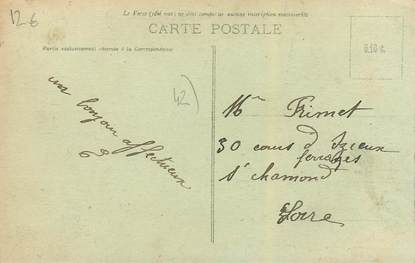 126
Le Verso (côté vue) ne doit comporter aucune inscription manuscrite
CARTE POSTALE
Partie exclusivement réservée à la Correspondance
un bonjour affectueux
42)
Mme Frimet
30 cours d Izieux
St chamond
Loire